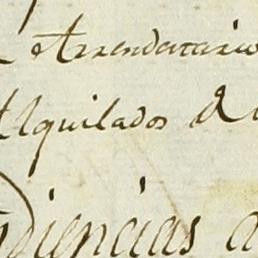 Arrendatario
Alquilados
diencias